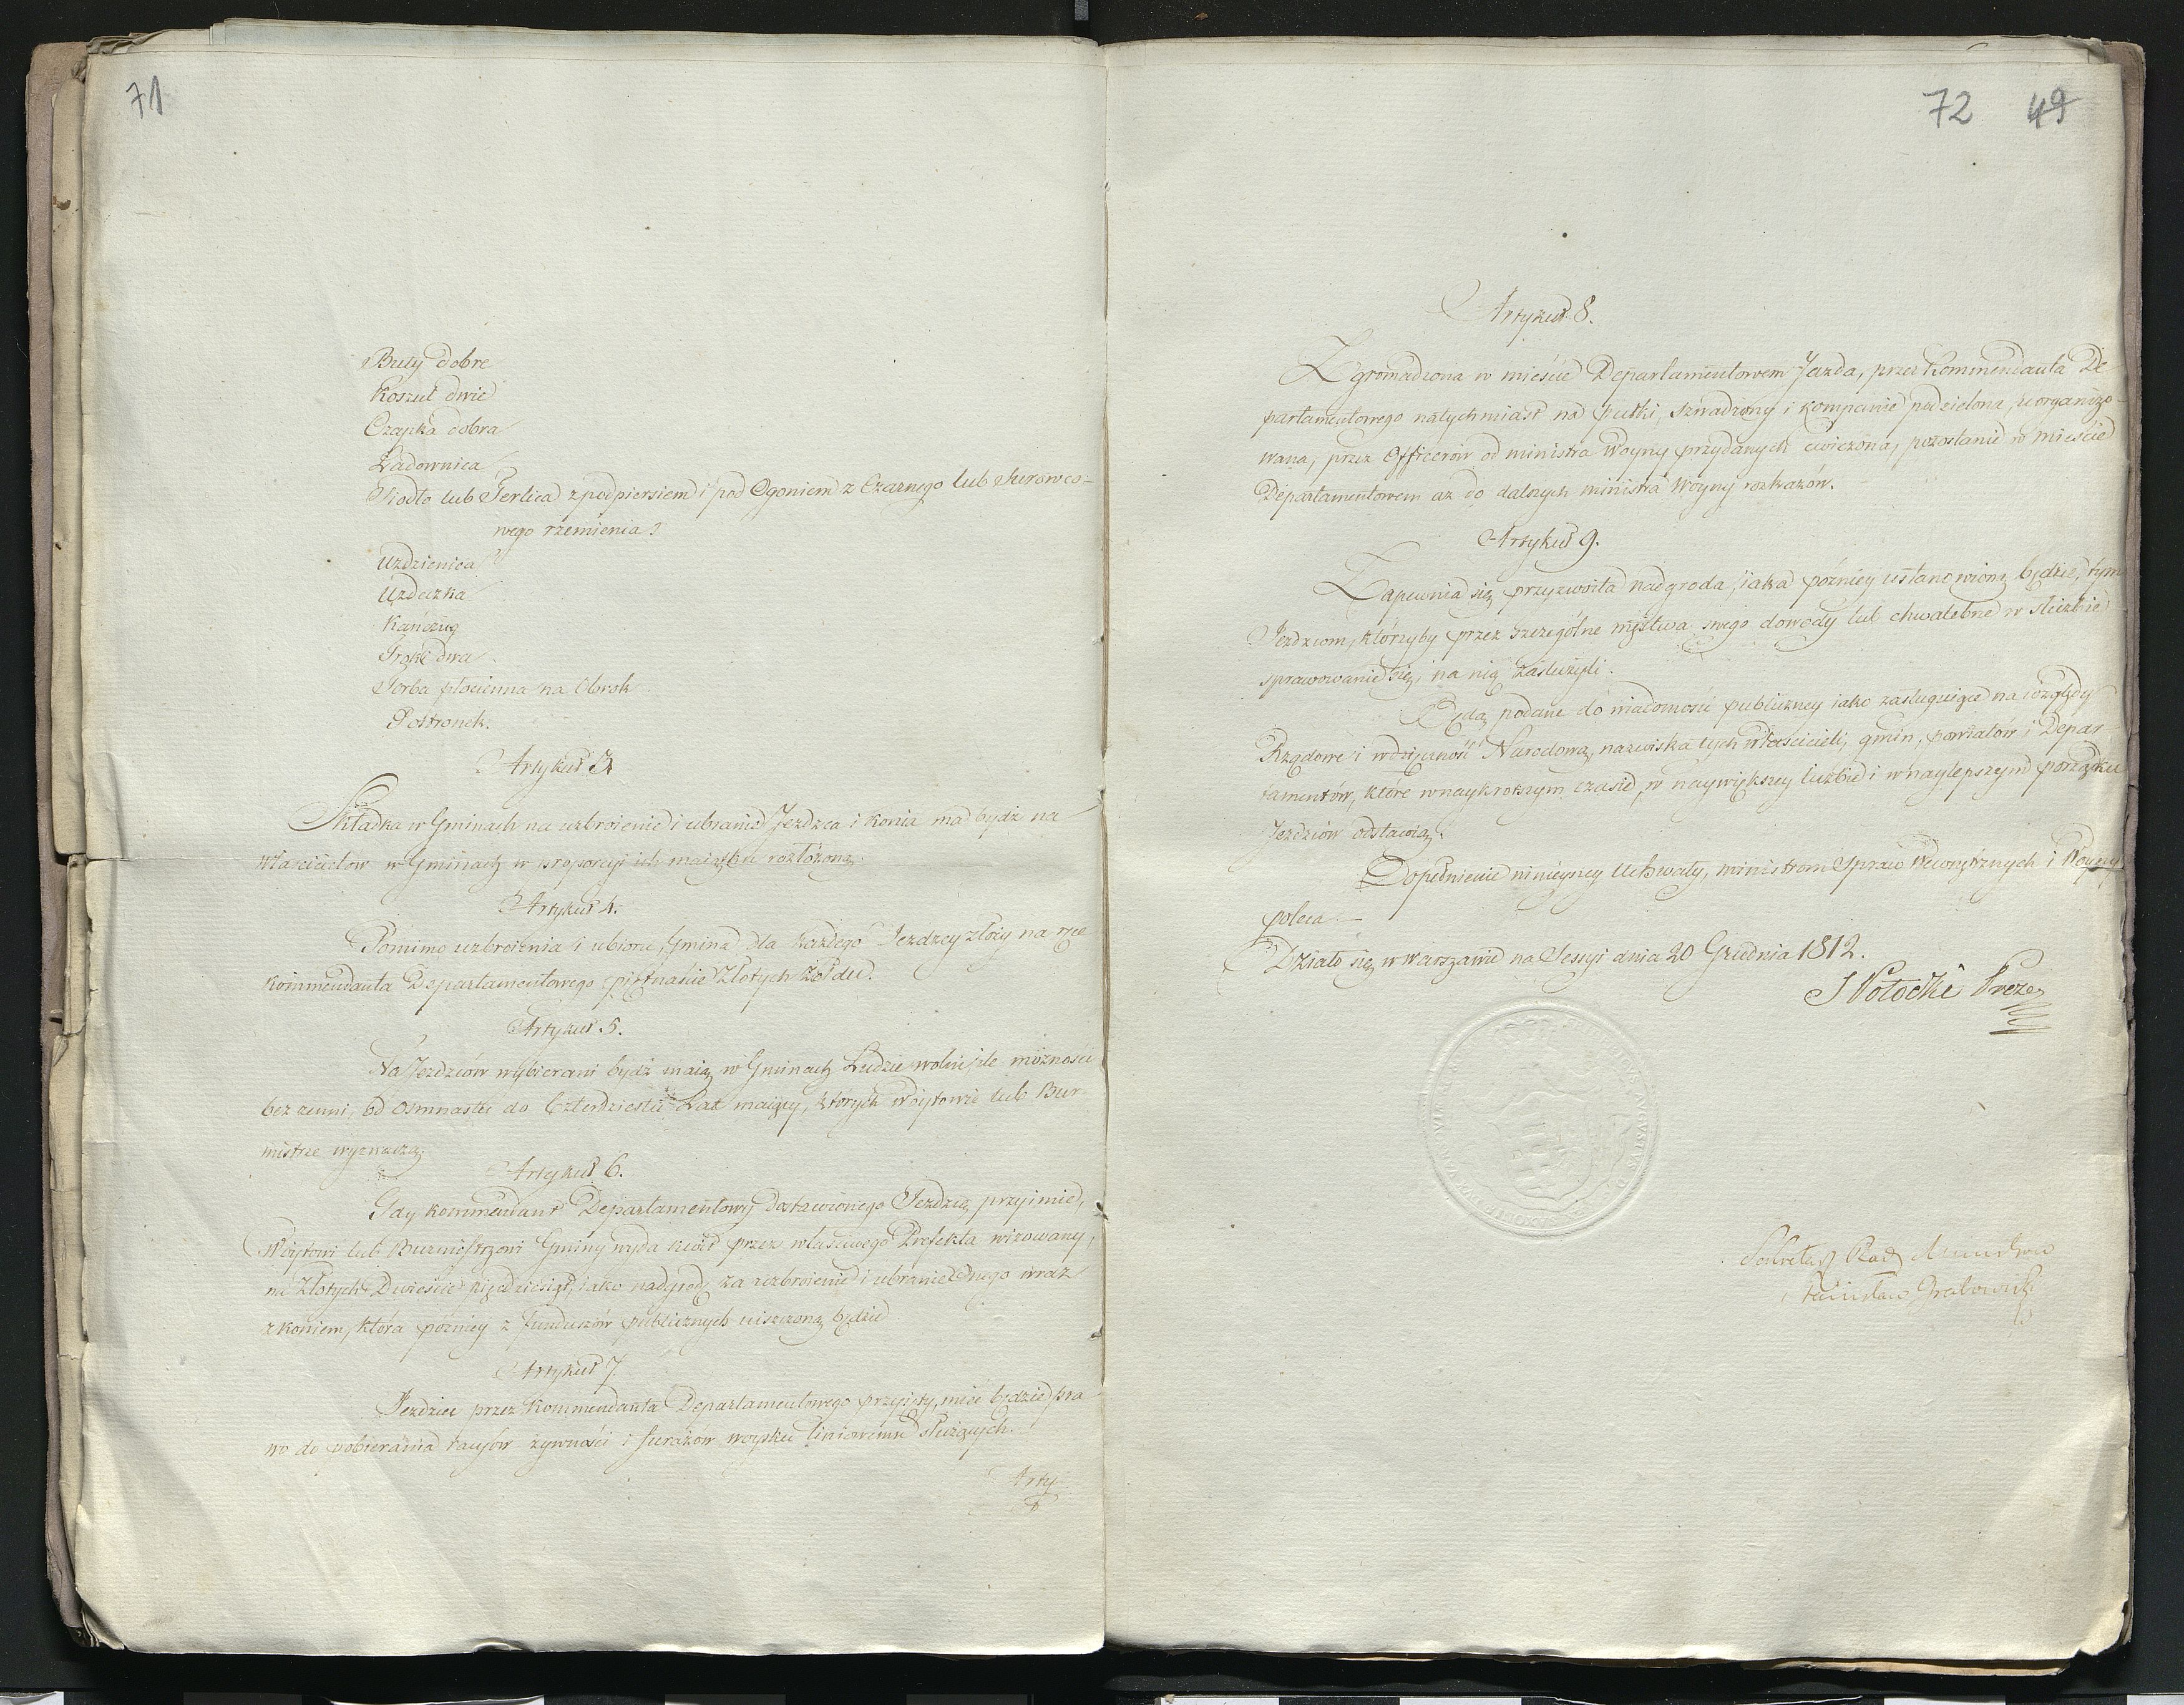 71
Buty dobre
Koszul dwie
Czapka dobra
Ładownica
Siodło lub Terlica z podpiersiem i pod Ogoniem z Czarnego lub Surowco-
wego rzemienia
Uzdzienica
Uzdeczka
Kańczug
Troki dwa
Torba płócienna na Obrok
Postronek.
Artykuł 3
Składka w Gminach na uzbroienie i ubranie Jezdzca i konia ma bydz na
Właścicielow w Gminach w proporcyi ich maiątku rozłożoną.
Artykuł 4.
Pomimo uzbroienia i ubioru, Gmina dla każdego Jezdzcy złoży na ręce
Kommendanta Departamentowego piętnaście Złotych żołdu.
Artykuł 5.
Na Jezdzców wybierani bydź maią w Gminach Ludzie wolni, ile możności
bezzenni, od Osmnastu do Czterdziestu Lat maiący, których Wóytowie lub Bur-
mistrze wyznaczą.
Artykuł 6.
Gdy Kommendant Departamentowy dostawionego Jezdzcę przyimie,
Wóytowi lub Burmistrzowi Gminy wyda kwit przez właściwego Prefekta wizowany,
na Złotych Dwieście Pięćdziesiąt, iako nadgrodę za uzbroienie i ubranie onego wraz
z koniem, która pozniey z Funduszów publicznych uiszczoną będzie
Artykuł 7.
Jezdziec przez Kommendanta Departamentowego przyięty, mieć będzie pra
wo do pobierania racyów żywności i furażow woysku liniowemu służących.
Arty
72 49
Artykuł 8.
Zgromadzona w mieście Departamentowem Jazda, przez Kommendanta De-
partamentowego natychmiast na pułki, szwadrony i kompanie podzielona, uorganizo-
wana, przez Officerów od Ministra Woyny przydanych ćwiczona, pozostanie w mieście
Departamentowem aż do dalszych ministra Woyny rozkazów.
Artykuł 9.
Zapewnia się przyzwoita nadgroda, iaka pózniey ustanowioną będzie, tym
Jezdzcom, którzyby przez szczególne męstwa swego dowody lub chwalebne w służbie
sprawowanie się, na nią zasłużyli.
Będą podane do wiadomości publiczney iako zasługuiące na względy
Rządowe i wdzięczność Narodową, nazwiska tych właścicieli, gmin, powiatów i Depar-
tamentów, które w naykrotszym czasie, w naywiększey liczbie i w naylepszym porządku
Jezdzców odstawią.
Dopełnienie ninieyszey Uchwały, ministrom Spraw Wewnętrznych i Woyny
poleca.
Działo się w Warszawie na Sessyi dnia 20 Grudnia 1812.
S Potocki Prezes
Sekretarz Rady Ministrów
Stanisław Grabowski